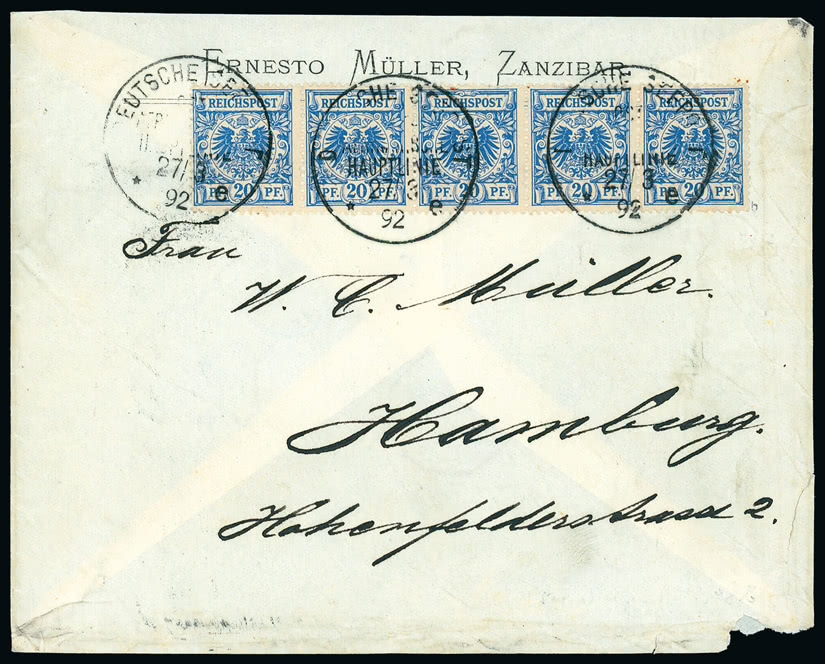 ERNESTO MÜLLER, ZANZIBAR
REICHSPOST REICHSPOST REICHSPOST REICHSPOST REICHSPOST
20 PF. 20 PF. 20 PF. 20 PF. 20 PF.
EUTSCHE SEE
27/3
92 e
CHE SE ST
HAUPTLINIE
27
92 e
SCHE SEEPO
HAUPTLINIE
27/3
92 e
Frau
W. C. Müller.
Hamburg.
Hohenfelderstrasse 2.